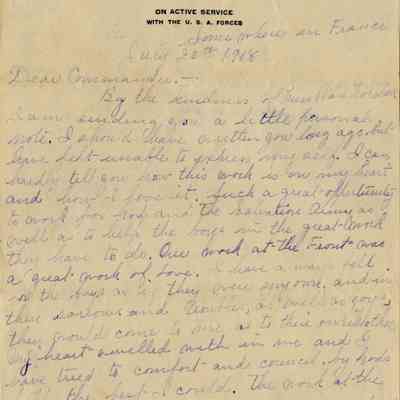 ON ACTIVE SERVICE
WITH THE U. S. A. FORCES
Somewhere in France
July 20th 1918
Dear Commander.—
By the kindness of
I am sending you a little personal
note. I should have written you long ago but
have felt unable to express myself. I can
hardly tell you how this work is on my heart
and how I love it. Such a great opportunity
to work for God and the Salvation Army as
well as to help the boys in the great work
they have to do. Our work at the Front was
a great work of love. I have always felt
the boys as if they were my own and in
their sorrows and troubles, as well as joys
they would come to me as to their own mother
My heart swelled with in me and I
have tried to comfort and council, by God's
the best I could. The work at the